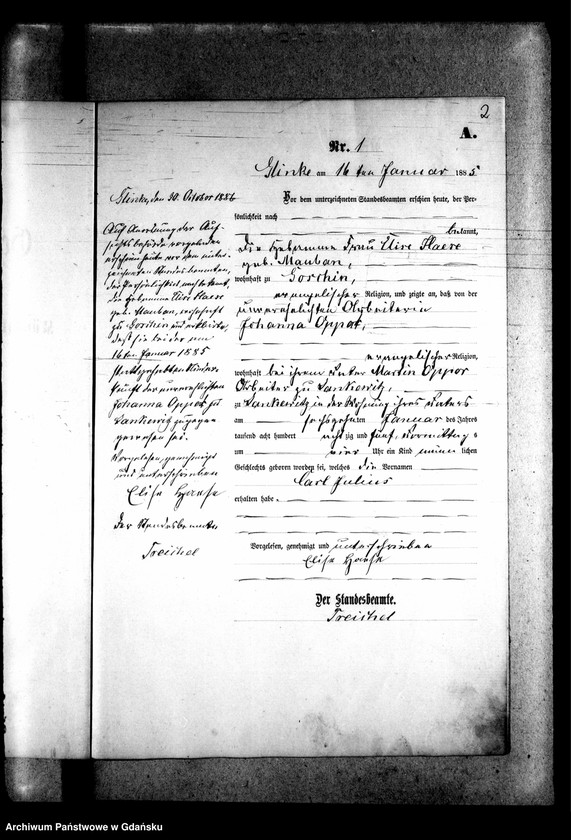 2
A.
Nr. 1
Glinke am 16ten Januar 1885
Vor dem unterzeichneten Standesbeamten erschien heute, der Per-
sönlichkeit nach
bekannt,
die Hebamme Frau Elise Haese
geb. Mauban,
wohnhaft zu Gorchin,
evangelischer Religion, und zeigte an, daß von der
unverehelichten Arbeiterin
Johanna Oppor,
evangelischer Religion,
wohnhaft bei ihrem Vater Martin Oppor
Arbeiter zu Lankewitz,
zu Lankewitz in der Wohnung ihres Vaters
am sechszehnten Januar des Jahres
tausend acht hundert achtzig und fünf, Vormittags
um vier Uhr ein Kind männlichen
Geschlechts geboren worden sei, welches die Vornamen
Carl Julius
erhalten habe.
Vorgelesen, genehmigt und unterschrieben
Elise Haese
Der Standesbeamte.
Treichel
Glinke, den 30. October 1886
Auf Anordnung der Auf-
sichtsbehörde
erschien heute vor dem unter-
zeichneten Standesbeamten,
der Persönlichkeit nach bekannt,
die Hebamme Elise Haese
geb. Mauban, wohnhaft
zu Gorchin und erklärte,
daß sie bei der am
16ten Januar 1885
stattgehabten Nieder-
kunft der unverehelichten
Johanna Oppor zu
Lankewitz zugegen
gewesen sei.
Vorgelesen, genehmigt
und unterschrieben
Elise Haese
Der Standesbeamte
Treichel
Archiwum Państwowe w Gdańsku